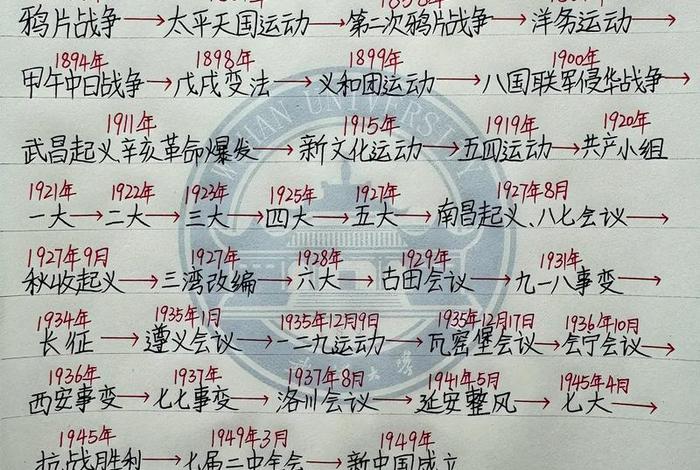 鸦片战争→太平天国运动→第二次鸦片战争→洋务运动→
1894年 1898年 1899年 1900年
甲午中日战争→戊戌变法→义和团运动→八国联军侵华战争→
1911年 1915年 1919年 1920年
武昌起义、辛亥革命爆发→新文化运动→五四运动→共产小组
1921年 1922年 1923年 1925年 1927年 1927年8月
一大→二大→三大→四大→五大→南昌起义、八七会议→
1927年9月 1927年 1928年 1929年 1931年
秋收起义→三湾改编→六大→古田会议→九一八事变→
1934年 1935年1月 1935年12月9日 1935年12月17日 1936年10月
长征→遵义会议→一二九运动→瓦窑堡会议→会宁会议→
1936年 1937年 1937年8月 1941年5月 1945年4月
西安事变→七七事变→洛川会议→延安整风→七大→
1945年 1949年3月 1949年
抗战胜利→七届二中全会→新中国成立